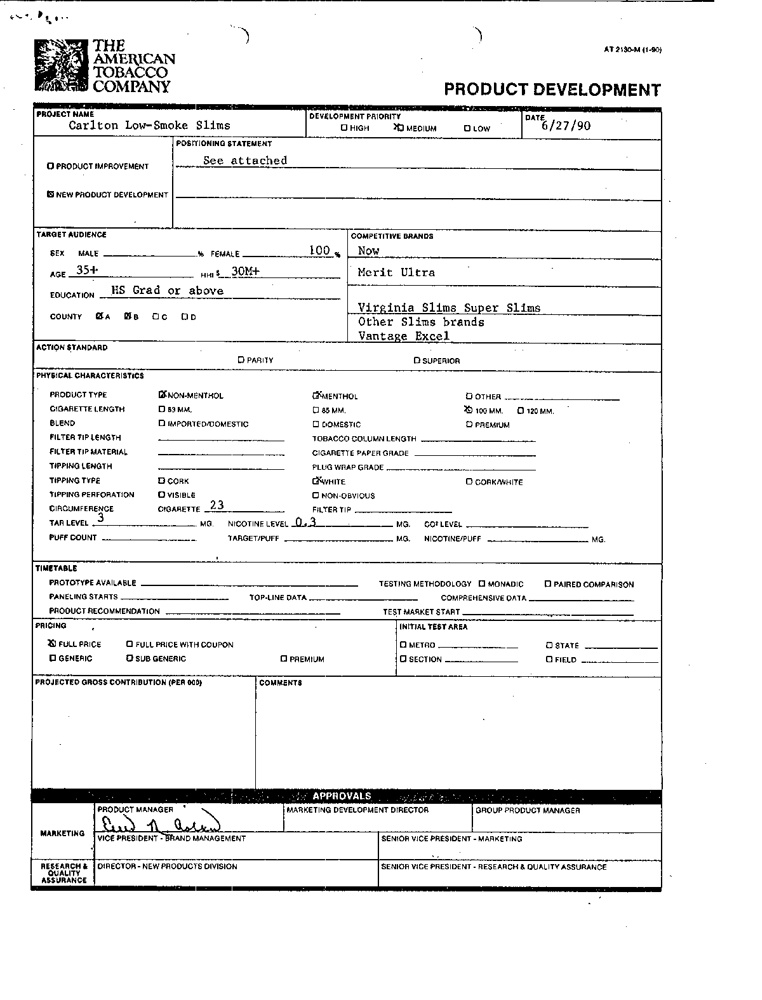 AT 2130-M (1-90)
THE
AMERICAN
TOBACCO
COMPANY
PRODUCT DEVELOPMENT
PROJECT NAME
Carlton Low-Smoke Slims
DEVELOPMENT PRIORITY
☐ HIGH ☒ MEDIUM ☐ LOW
DATE
6/27/90
☐ PRODUCT IMPROVEMENT
☒ NEW PRODUCT DEVELOPMENT
POSITIONING STATEMENT
See attached
TARGET AUDIENCE
SEX MALE % FEMALE 100 %
AGE 35+ HHI $ 30M+
EDUCATION HS Grad or above
COUNTY ☒ A ☒ B ☐ C ☐ D
COMPETITIVE BRANDS
Now
Merit Ultra
Virginia Slims Super Slims
Other Slims brands
Vantage Excel
ACTION STANDARD
☐ PARITY ☐ SUPERIOR
PHYSICAL CHARACTERISTICS
PRODUCT TYPE ☒ NON-MENTHOL ☒ MENTHOL ☐ OTHER
CIGARETTE LENGTH ☐ 83 MM. ☐ 85 MM. ☒ 100 MM. ☐ 120 MM.
BLEND ☐ IMPORTED/DOMESTIC ☐ DOMESTIC ☐ PREMIUM
FILTER TIP LENGTH TOBACCO COLUMN LENGTH
FILTER TIP MATERIAL CIGARETTE PAPER GRADE
TIPPING LENGTH PLUG WRAP GRADE
TIPPING TYPE ☐ CORK ☒ WHITE ☐ CORK/WHITE
TIPPING PERFORATION ☐ VISIBLE ☐ NON-OBVIOUS
CIRCUMFERENCE CIGARETTE 23 FILTER TIP
TAR LEVEL 3 MG. NICOTINE LEVEL 0.3 MG. CO² LEVEL
PUFF COUNT TARGET/PUFF MG. NICOTINE/PUFF MG.
TIMETABLE
PROTOTYPE AVAILABLE TESTING METHODOLOGY ☐ MONADIC ☐ PAIRED COMPARISON
PANELING STARTS TOP-LINE DATA COMPREHENSIVE DATA
PRODUCT RECOMMENDATION TEST MARKET START
PRICING
☒ FULL PRICE ☐ FULL PRICE WITH COUPON
☐ GENERIC ☐ SUB GENERIC ☐ PREMIUM
INITIAL TEST AREA
☐ METRO ☐ STATE
☐ SECTION ☐ FIELD
PROJECTED GROSS CONTRIBUTION (PER 000)
COMMENTS
APPROVALS
MARKETING
PRODUCT MANAGER
MARKETING DEVELOPMENT DIRECTOR
GROUP PRODUCT MANAGER
VICE PRESIDENT - BRAND MANAGEMENT
SENIOR VICE PRESIDENT - MARKETING
RESEARCH &
QUALITY
ASSURANCE
DIRECTOR - NEW PRODUCTS DIVISION
SENIOR VICE PRESIDENT - RESEARCH & QUALITY ASSURANCE